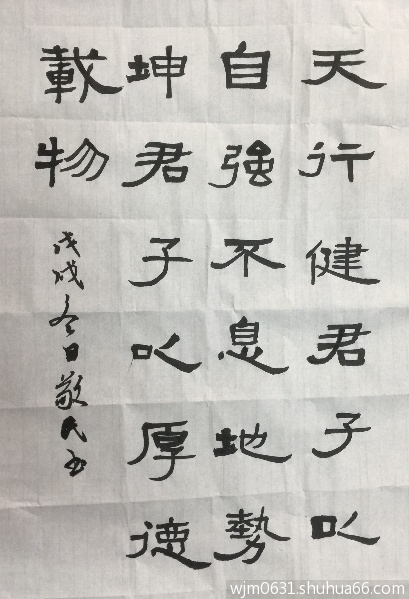 天行健君子以
自強不息地勢
坤君子以厚德
載物
戊戌冬日敬民书
wjm0631.shuhua66.com